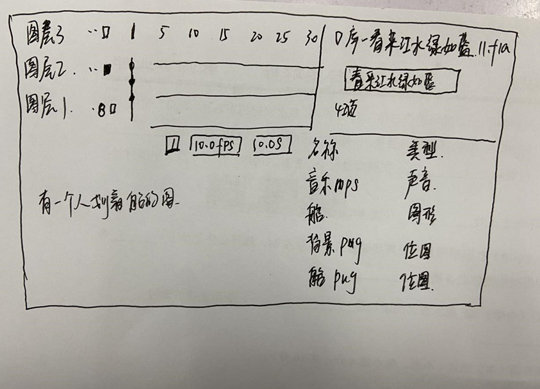 图层3 5 10 15 20 25 30
图层2
图层1
1 10.0fps 0.0S
有一个人划着船的图
库-春来江水绿如蓝11.fla
春来江水绿如蓝
4项
名称 类型
音乐mp3 声音
船 图形
背景png 位图
船png 位图